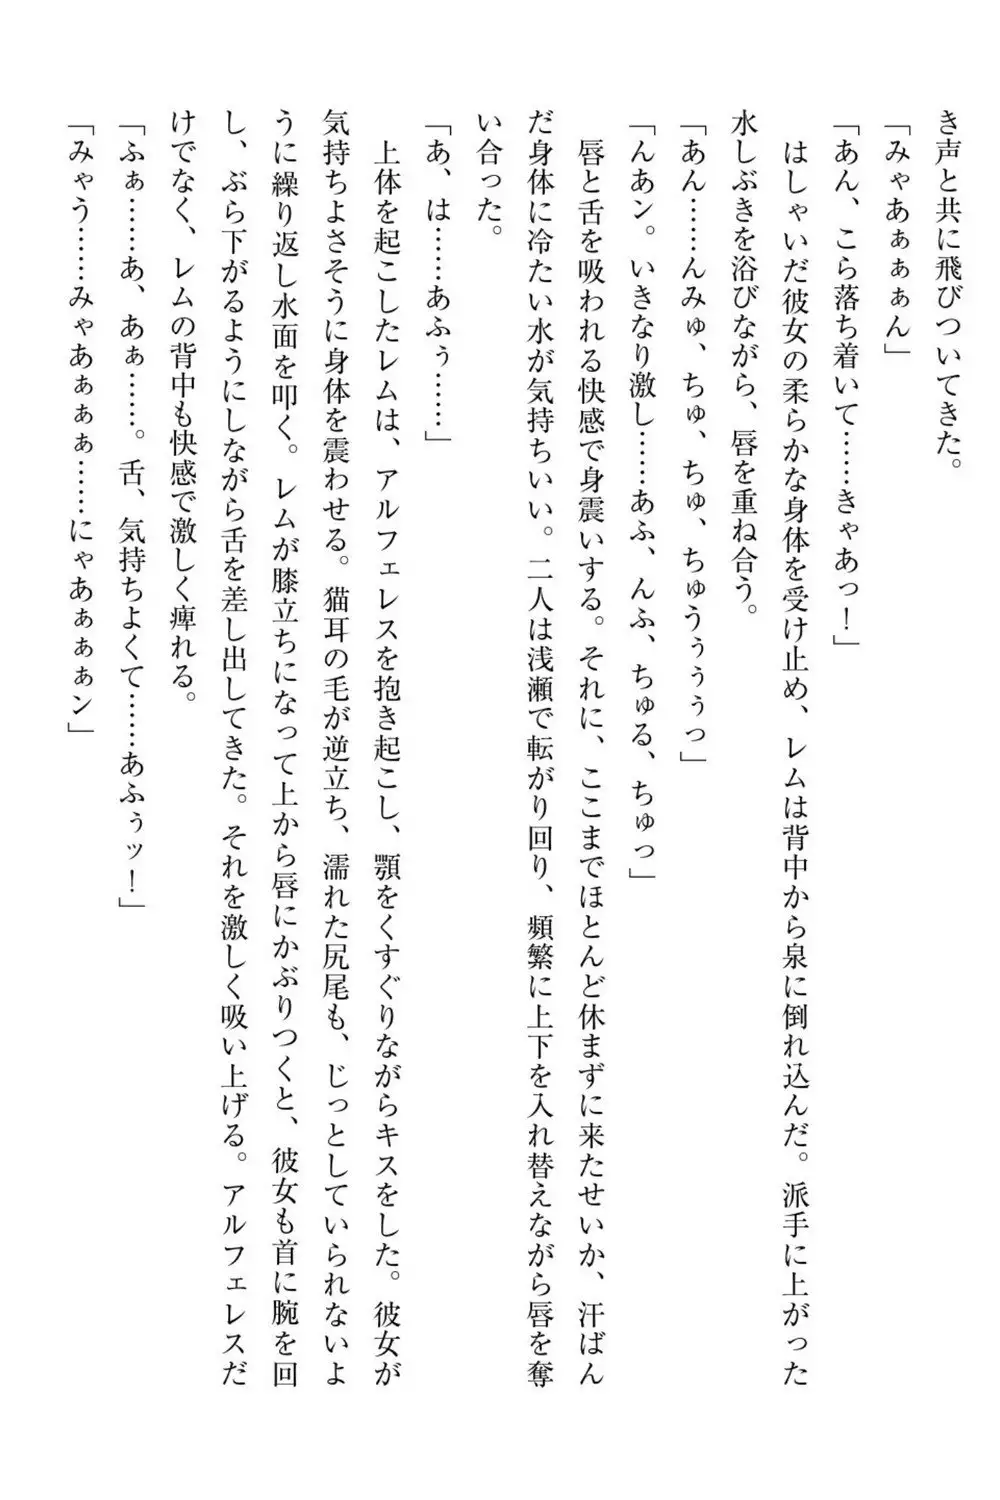 き声と共に飛びついてきた。
「みゃあぁぁぁん」
「あん、こら落ち着いて……きゃあっ！」
はしゃいだ彼女の柔らかな身体を受け止め、レムは背中から泉に倒れ込んだ。派手に上がった
水しぶきを浴びながら、唇を重ね合う。
「あん……んみゅ、ちゅ、ちゅ、ちゅうぅぅぅっ」
「んあン。いきなり激し……あふ、んふ、ちゅる、ちゅっ」
唇と舌を吸われる快感で身震いする。それに、ここまでほとんど休まずに来たせいか、汗ばん
だ身体に冷たい水が気持ちいい。二人は浅瀬で転がり回り、頻繁に上下を入れ替えながら唇を奪
い合った。
「あ、は……あふぅ……」
上体を起こしたレムは、アルフェレスを抱き起こし、顎をくすぐりながらキスをした。彼女が
気持ちよさそうに身体を震わせる。猫耳の毛が逆立ち、濡れた尻尾も、じっとしていられないよ
うに繰り返し水面を叩く。レムが膝立ちになって上から唇にかぶりつくと、彼女も首に腕を回
し、ぶら下がるようにしながら舌を差し出してきた。それを激しく吸い上げる。アルフェレスだ
けでなく、レムの背中も快感で激しく痺れる。
「ふぁ……あ、あぁ……。舌、気持ちよくて……あふぅッ！」
「みゃう……みゃあぁぁぁ……にゃあぁぁぁン」